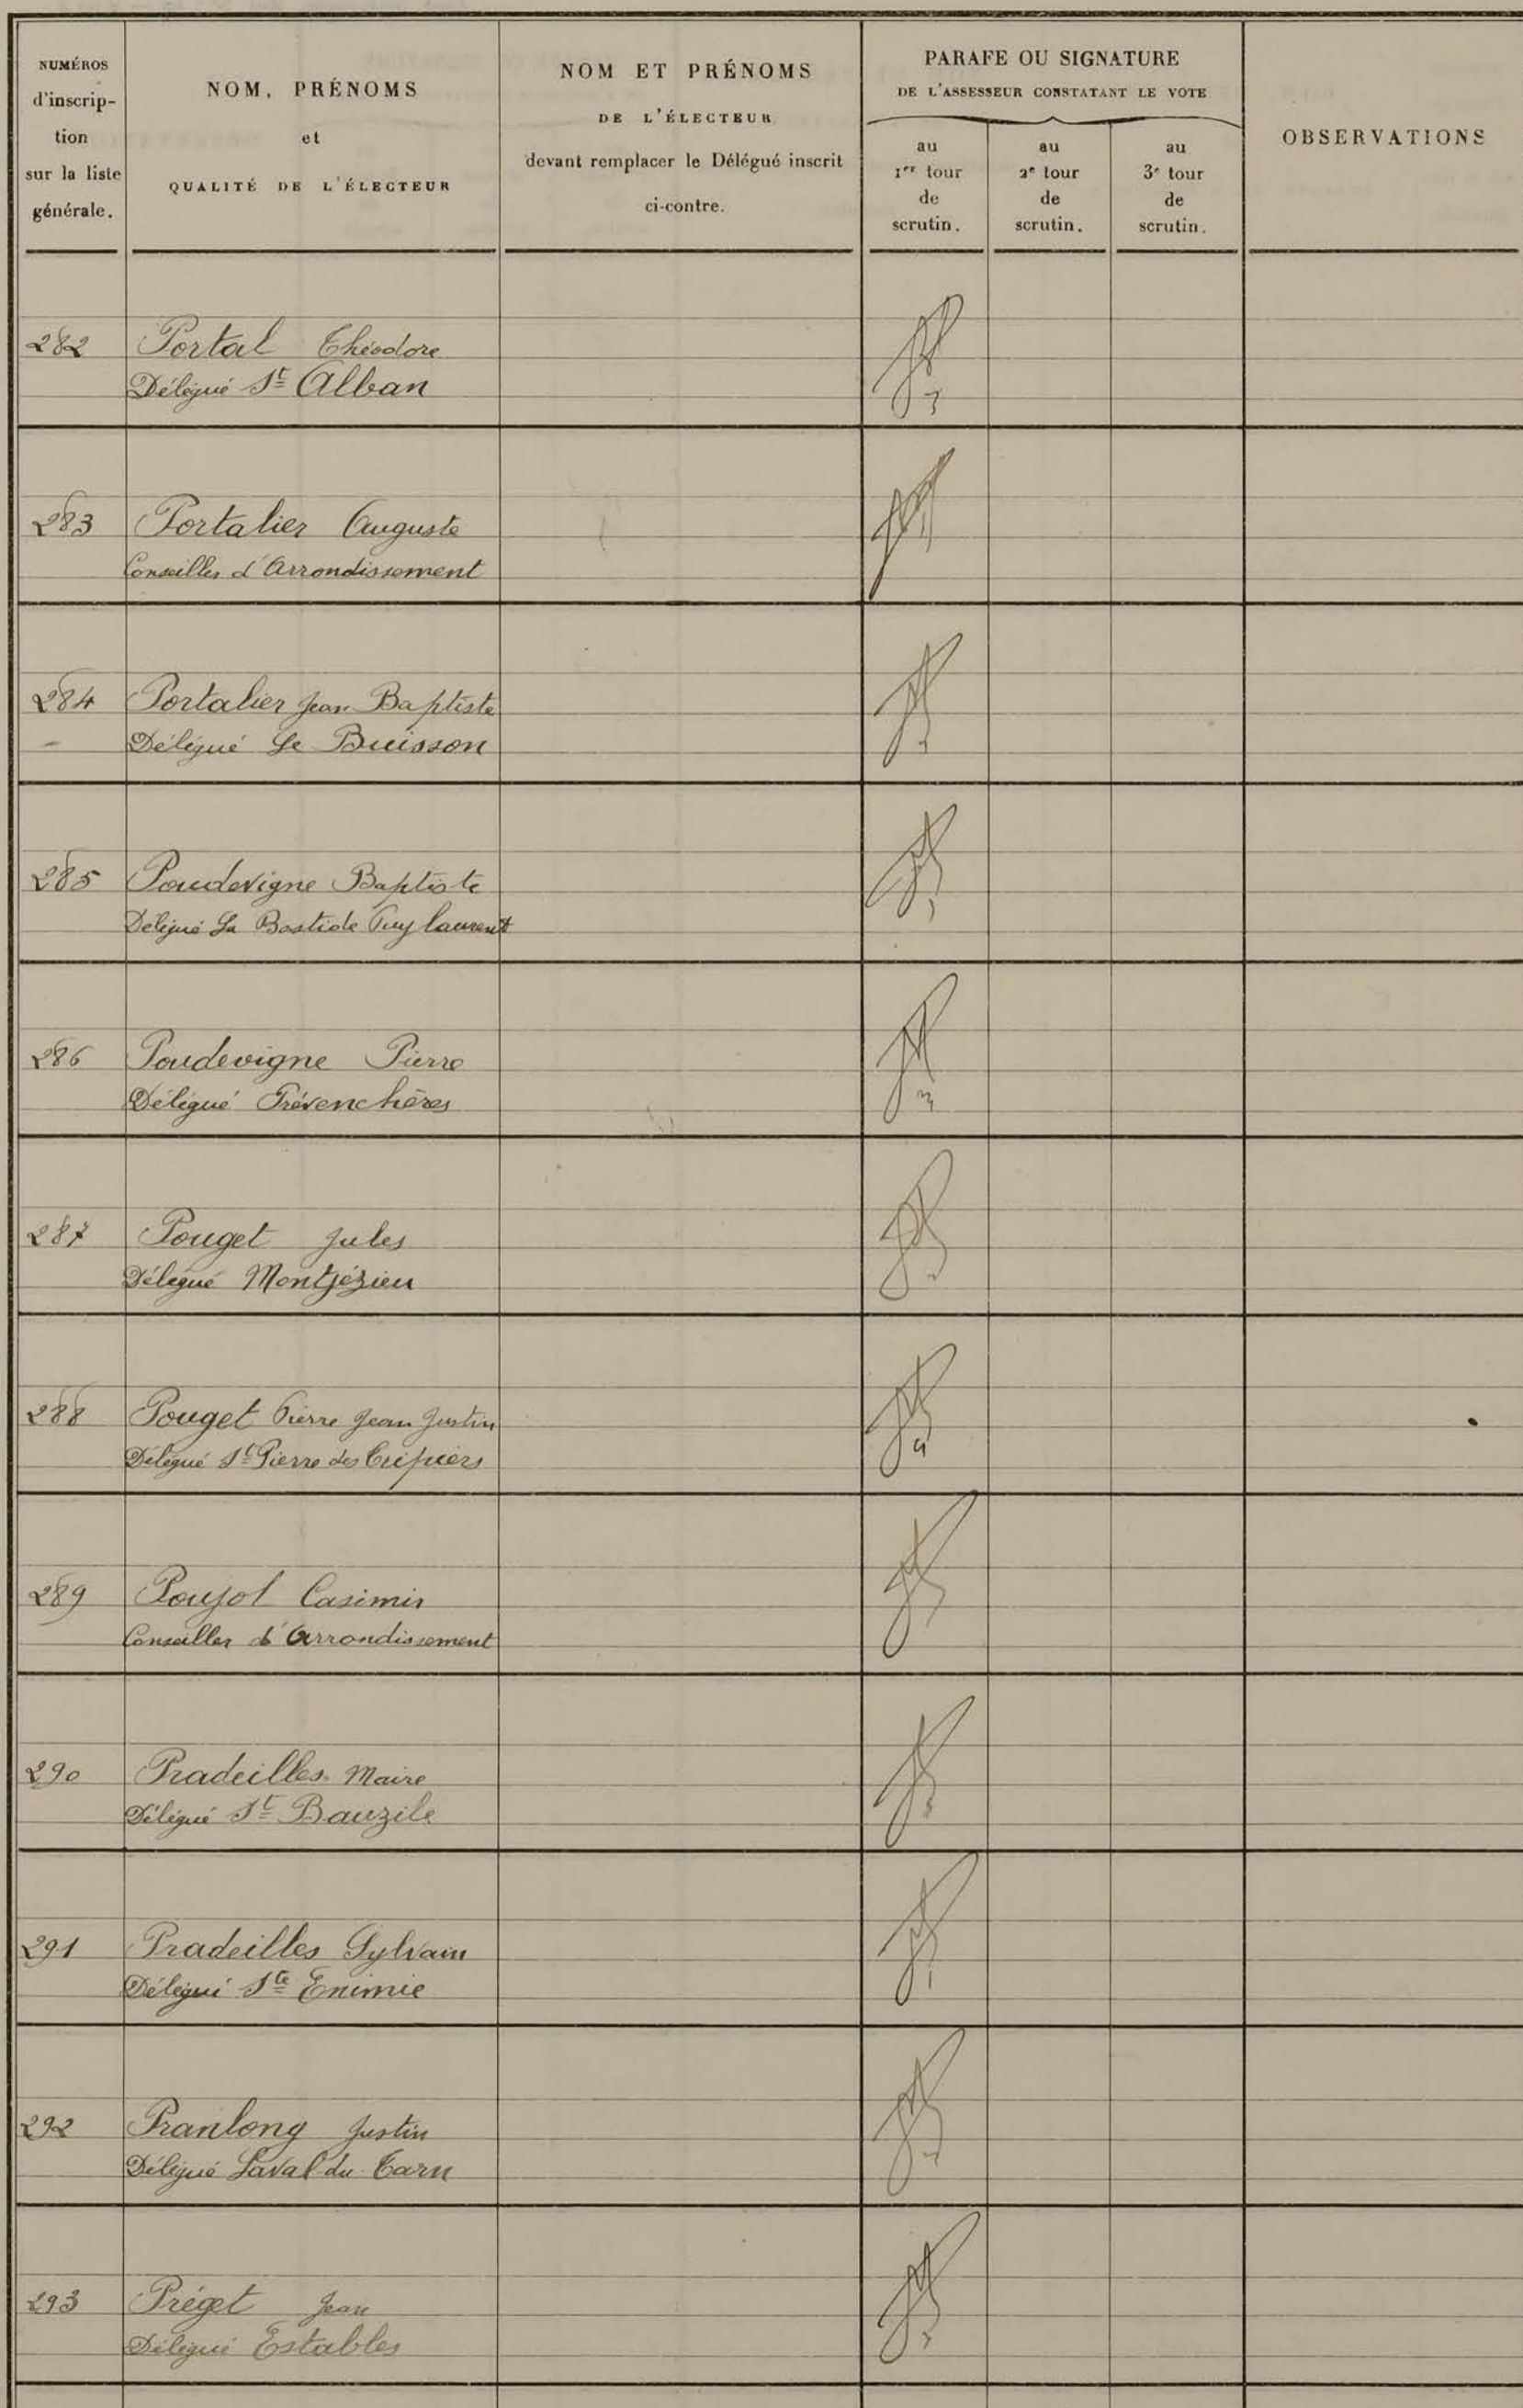 NUMÉROS
d'inscrip-
tion
sur la liste
générale.
NOM, PRÉNOMS
et
QUALITÉ DE L'ÉLECTEUR
NOM ET PRÉNOMS
DE L'ÉLECTEUR
devant remplacer le Délégué inscrit
ci-contre.
PARAFE OU SIGNATURE
DE L'ASSESSEUR CONSTATANT LE VOTE
au
1er tour
de
scrutin.
au
2e tour
de
scrutin.
au
3e tour
de
scrutin.
OBSERVATIONS
282 Portal Théodore
Délégué St Alban
283 Portalier Auguste
Conseiller d'Arrondissement
284 Portalier Jean Baptiste
Délégué Le Buisson
285 Poudevigne Baptiste
Délégué La Bastide Puylaurent
286 Poudevigne Pierre
Délégué Prévenchères
287 Pouget Jules
Délégué Montjézieu
288 Pouget Pierre Jean Justin
Délégué St Pierre des Tripiers
289 Poujol Casimir
Conseiller d'Arrondissement
290 Pradeilles Maire
Délégué St Bauzile
291 Pradeilles Sylvain
Délégué Ste Enimie
292 Pranlong Justin
Délégué Laval-du-Tarn
293 Préget Jean
Délégué Estables